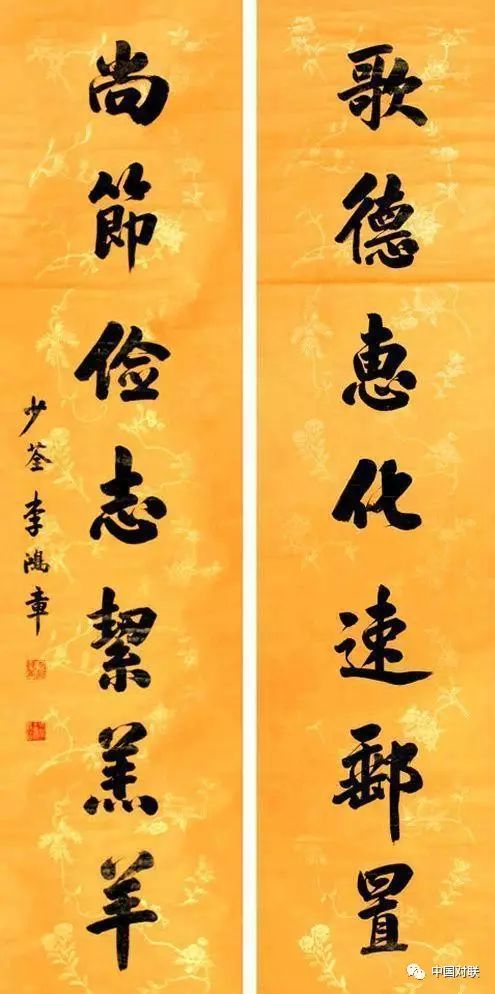 歌德惠化速郵置
尚節俭志絜羔羊
少荃李鴻章
中国对联